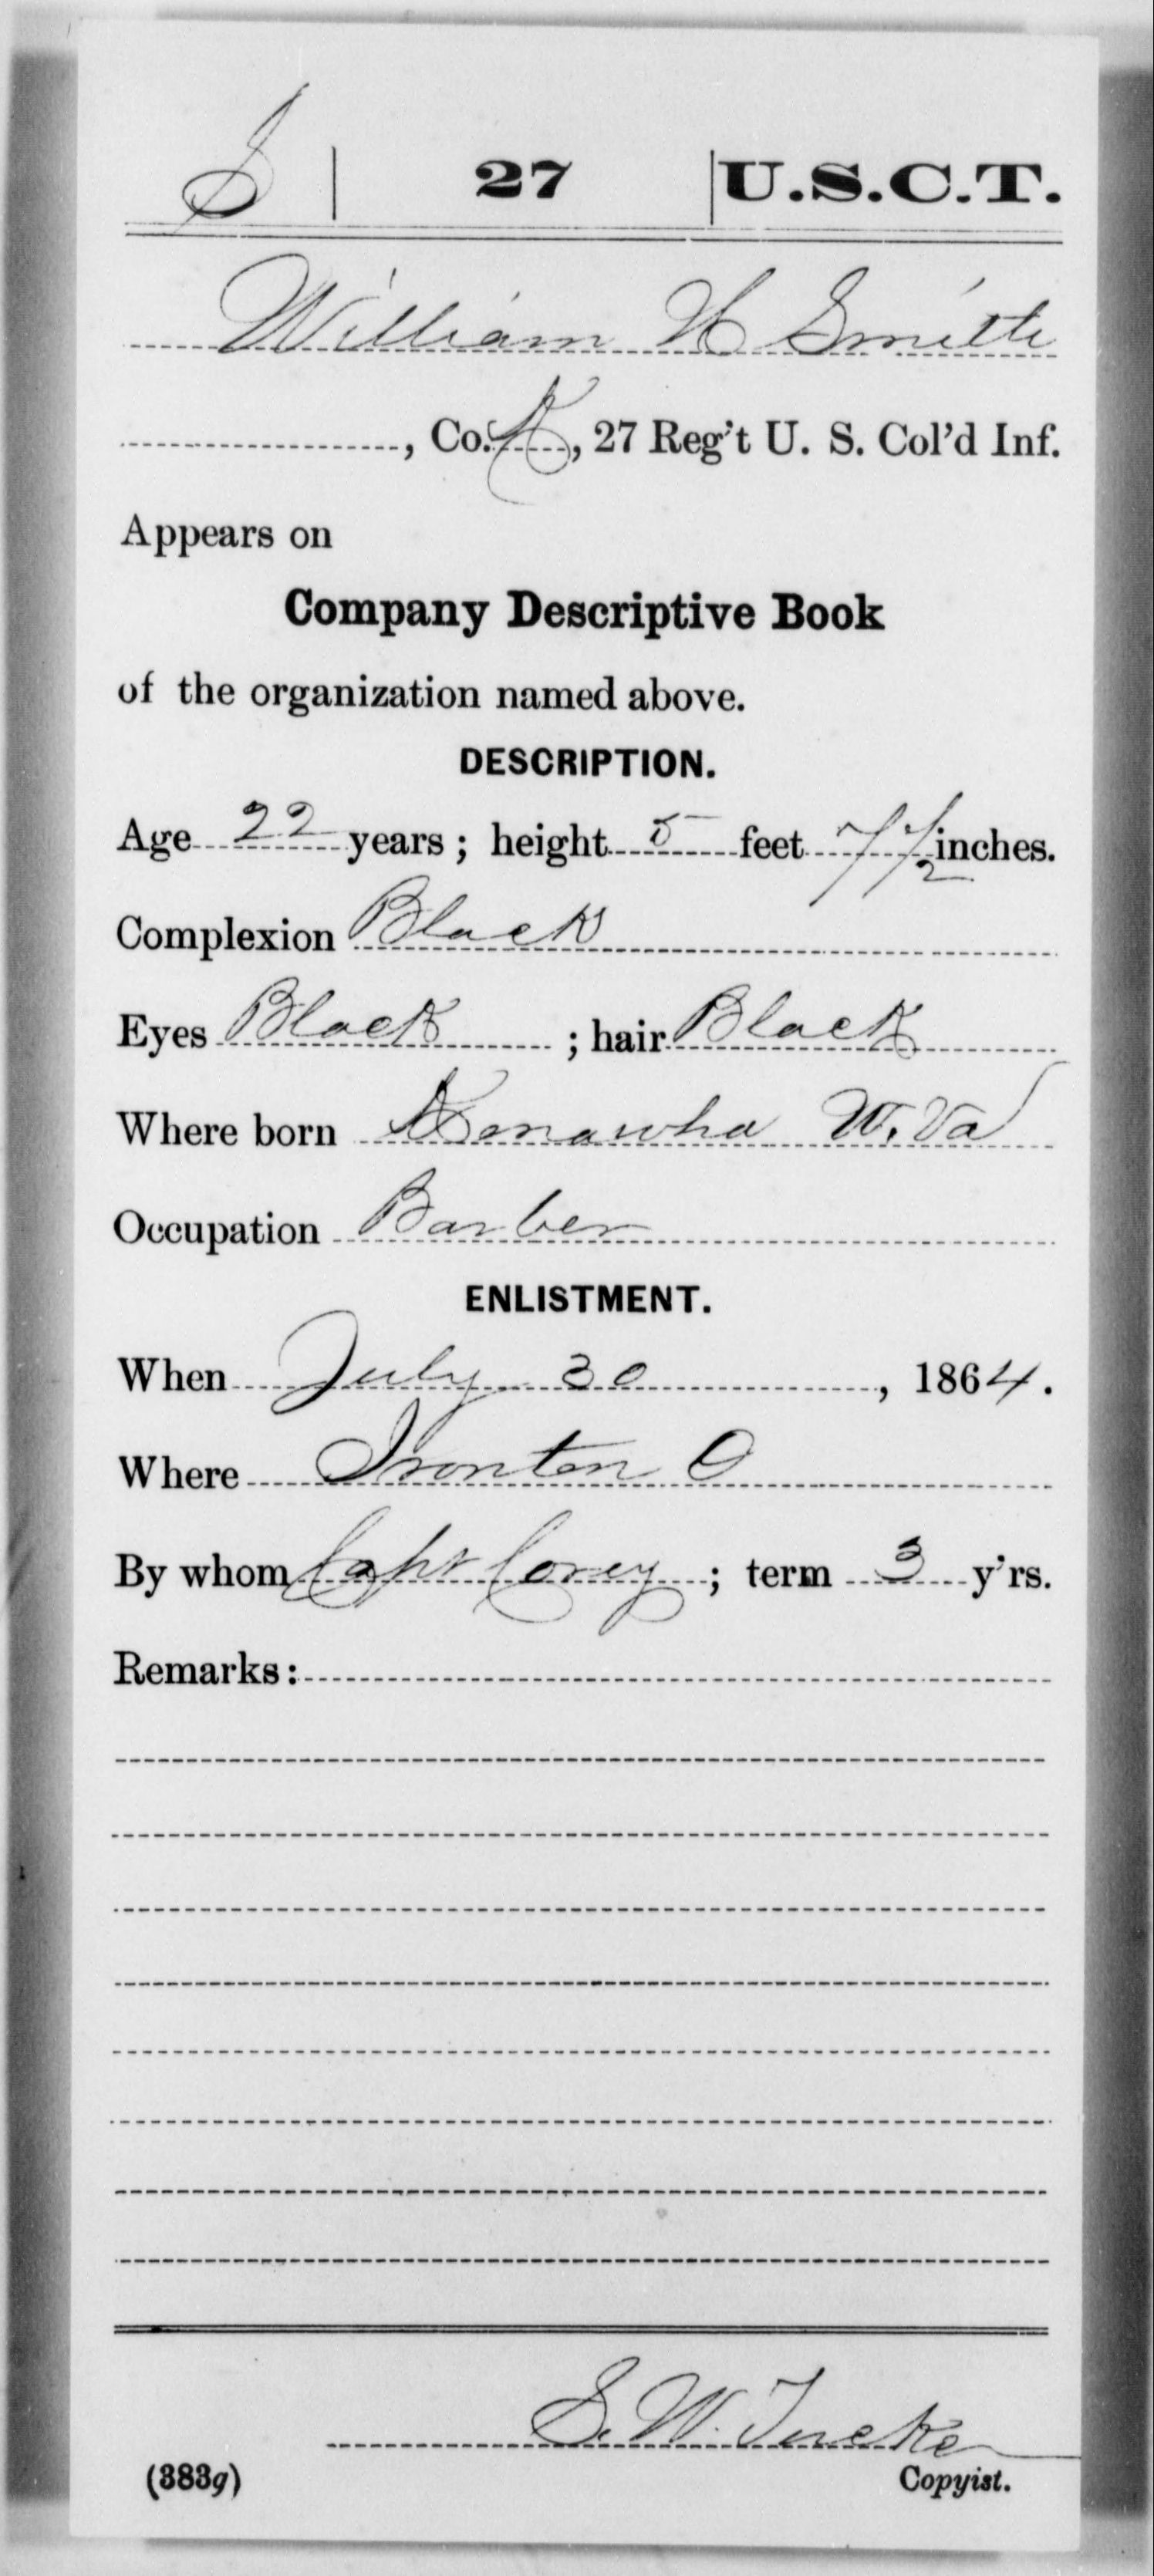 S | 27 | U.S.C.T.
William H Smith
, Co. K, 27 Reg't U. S. Col'd Inf.
Appears on
Company Descriptive Book
of the organization named above.
DESCRIPTION.
Age 22 years; height 5 feet 7 1/2 inches.
Complexion Black
Eyes Black ; hair Black
Where born Kanawha W. Va
Occupation Barber
ENLISTMENT.
When July 30, 1864.
Where Ironton O
By whom Capt Corey; term 3 y'rs.
Remarks:
S. W. 
(383g) Copyist.